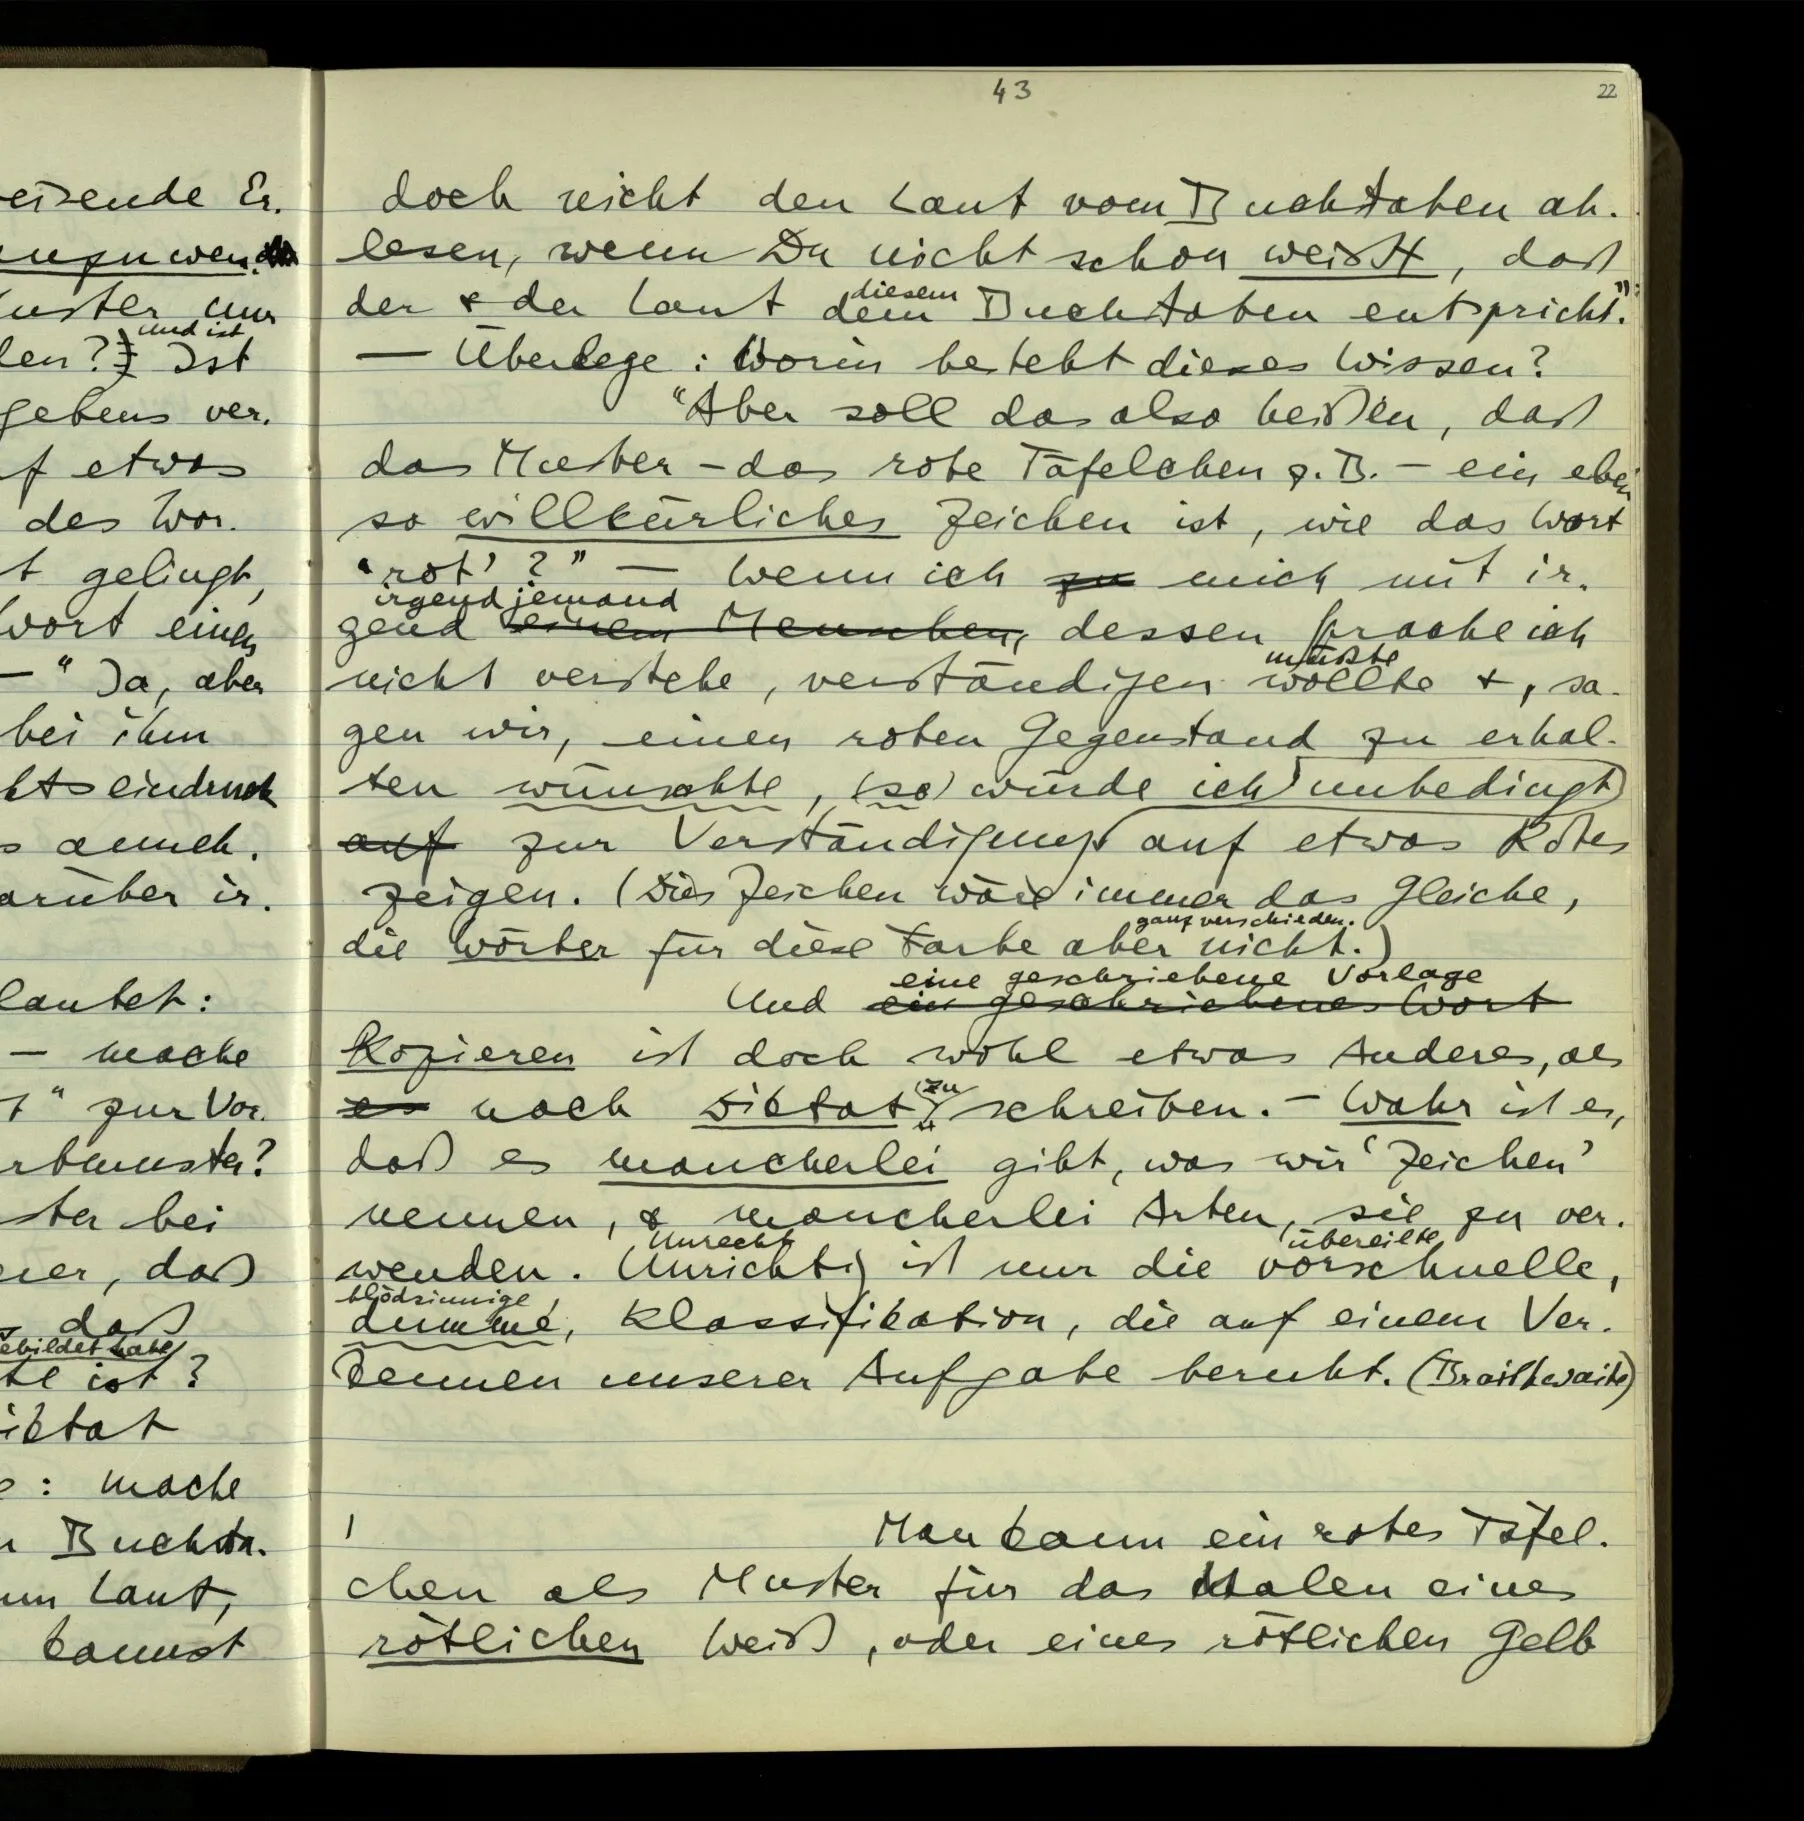 43
22
eisende Er.
nzuwen.
uster nur
und ist
len? Ist
gebens ver.
f etwas
des Wor.
t gelingt,
Wort eines
— " Ja, aber
bei ihm
htseindruck
s anneh.
arüber ir.
lautet:
— mache
t" zur Vor.
rbmuster?
ster bei
er, daß
s daß
ebildet habe
te ist?
iktat
e: mache
n Buchsta.
um Laut,
kannst
doch nicht den Laut vom Buchstaben ab.
lesen, wenn Du nicht schon weißt, daß
diesem
der & der Laut dem Buchstaben entspricht."
— Überlege: Worin besteht dieses Wissen?
"Aber soll das also heißen, daß
das Muster – das rote Täfelchen z.B. – ein eben
so willkürliches Zeichen ist, wie das Wort
'rot'?" — Wenn ich zu mich mit ir.
irgend jemand
gend einem Menschen, dessen Sprache ich
müßte
nicht verstehe, verständigen wollte &, sa-
gen wir, einen roten Gegenstand zu erhal-
ten wünschte, (so) würde ich unbedingt
auf zur Verständigung auf etwas Rotes
zeigen. (Dies Zeichen wäre immer das Gleiche,
ganz verschieden.
die Wörter für diese Farbe aber nicht.)
eine geschriebene Vorlage
Und ein geschriebenes Wort
Kopieren ist doch wohl etwas Anderes, als
(zu
es nach Diktat schreiben. – Wahr ist es,
daß es mancherlei gibt, was wir 'Zeichen'
nennen, & mancherlei Arten, sie zu ver.
Unrecht
übereilte,
wenden. Unrichtig ist nur die vorschnelle,
blödsinnige,
dumme, Klassifikation, die auf einem Ver.
kennen unserer Aufgabe beruht. (Braithwaite)
Man kann ein rotes Täfel.
chen als Muster für das Malen eines
rötlichen Weiß, oder eines rötlichen Gelb